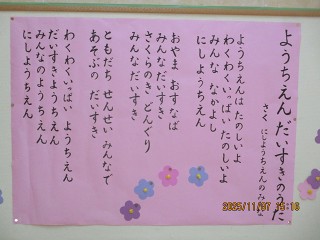 ようちえん だいすきのうた
さく にしようちえんのみんな
ようちえんは たのしいよ
わくわくいっぱい たのしいよ
みんな なかよし
にしようちえん
おやま おすなば
みんなだいすき
さくらのき どんぐり
みんなだいすき
ともだち せんせい みんなで
あそぶの だいすき
わくわくいっぱい ようちえん
だいすきようちえん
みんなのようちえん
にしようちえん
2025/11/07